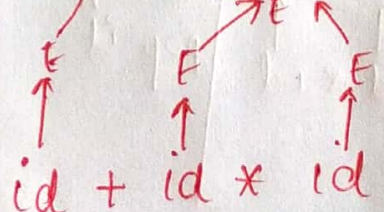 E
E E
E
id + id * id